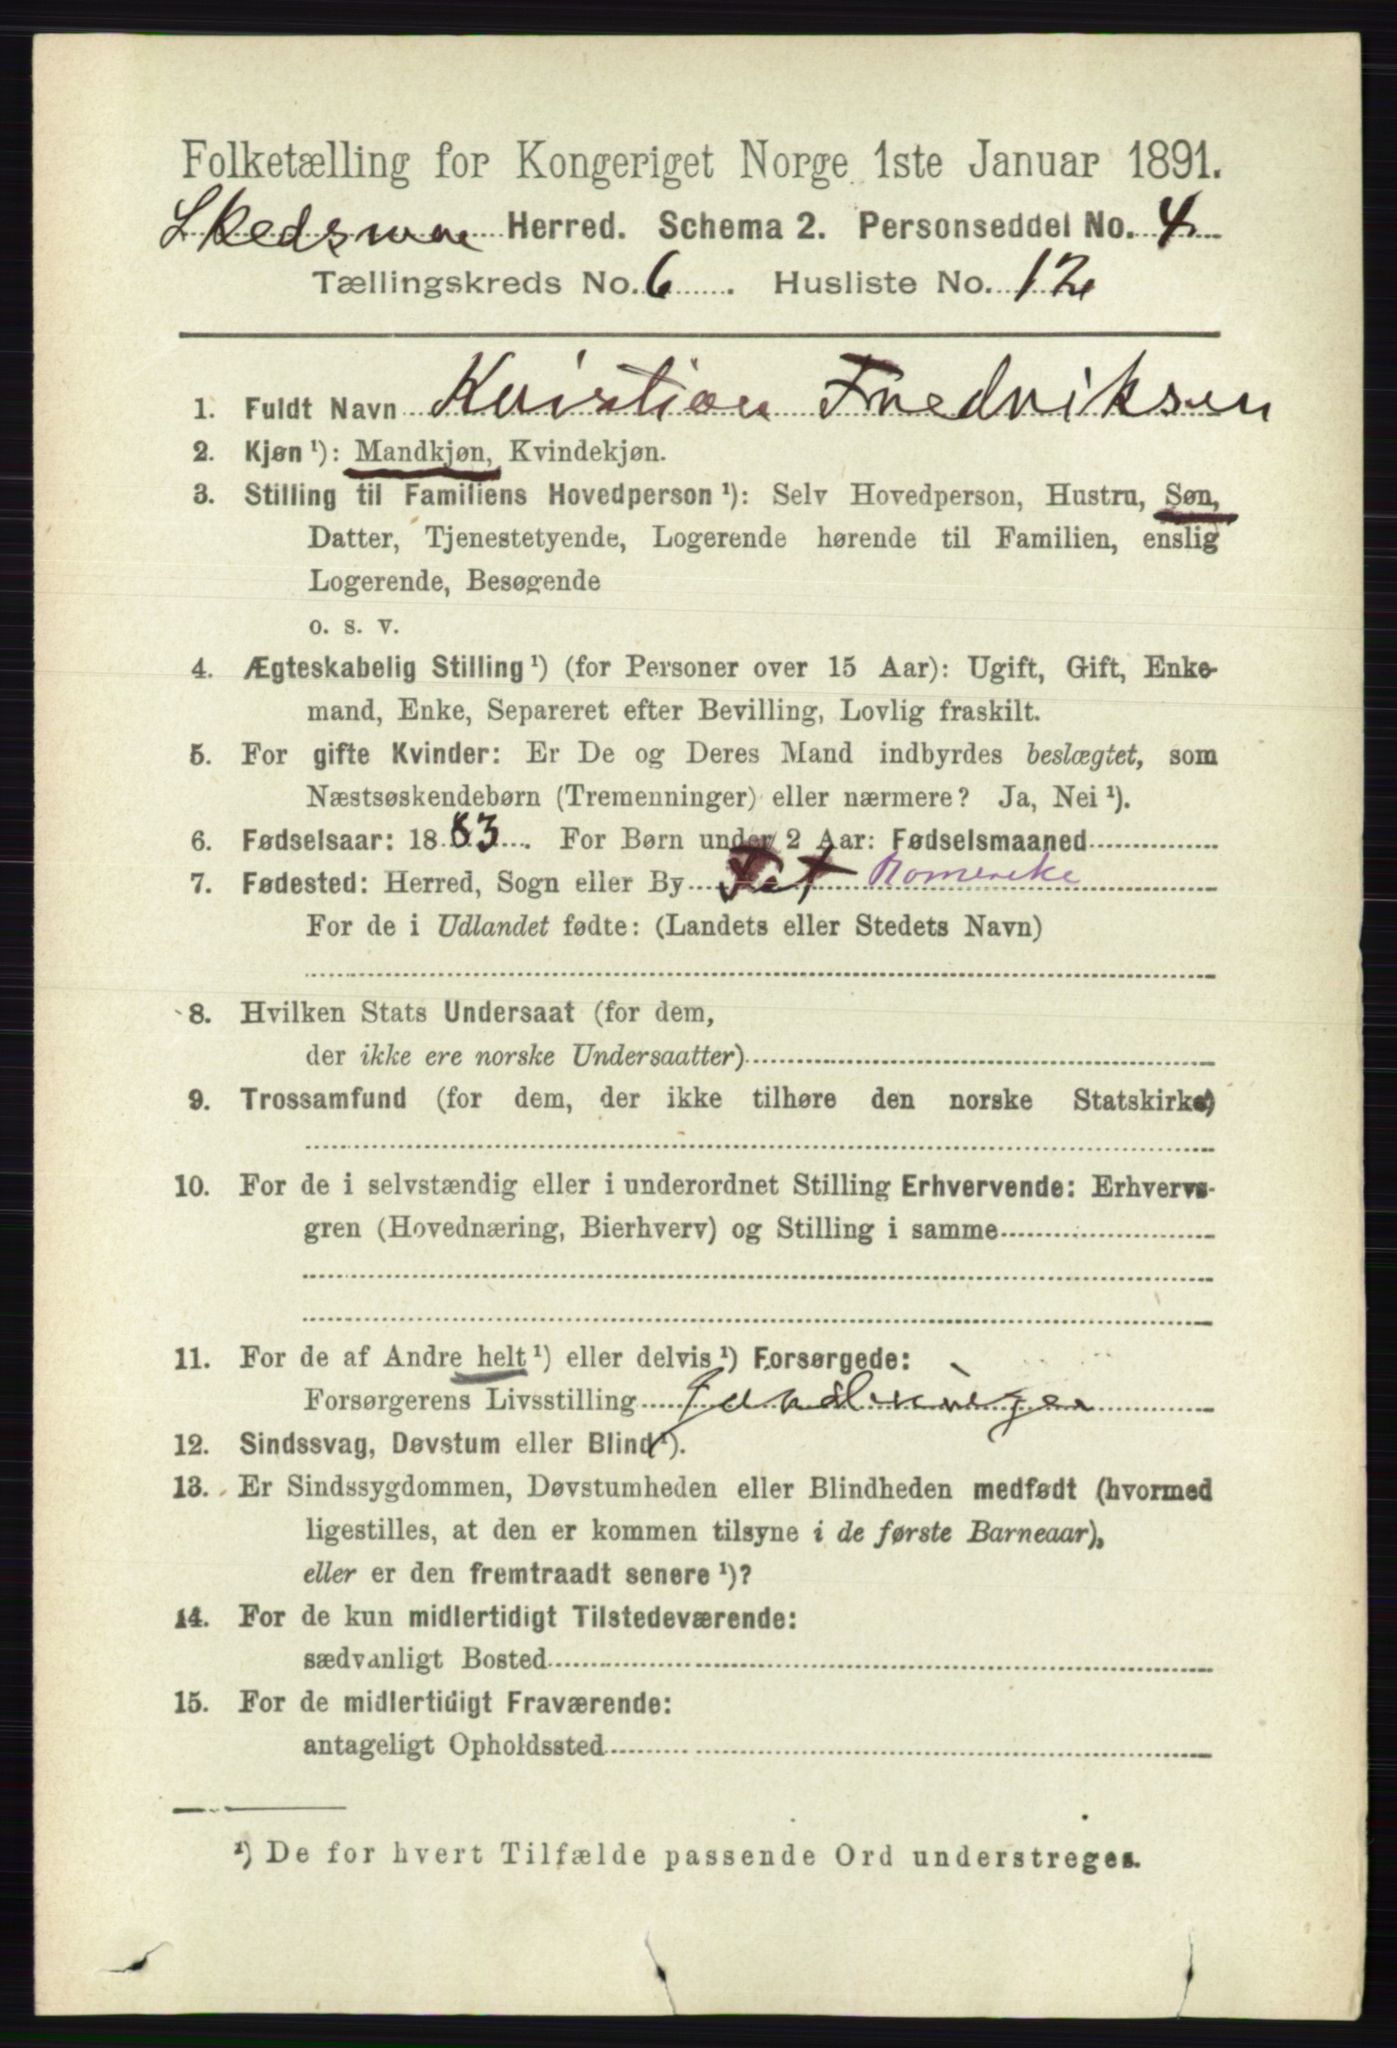 Folketælling for Kongeriget Norge 1ste Januar 1891.
Skedsmoe Herred. Schema 2. Personseddel No. 4
Tællingskreds No. 6 . Husliste No. 12
1. Fuldt Navn Kristian Fredriksen
2. Kjøn ¹): Mandkjøn, Kvindekjøn.
3. Stilling til Familiens Hovedperson ¹): Selv Hovedperson, Hustru, Søn,
Datter, Tjenestetyende, Logerende hørende til Familien, enslig
Logerende, Besøgende
o. s. v.
4. Ægteskabelig Stilling ¹) (for Personer over 15 Aar): Ugift, Gift, Enke-
mand, Enke, Separeret efter Bevilling, Lovlig fraskilt.
5. For gifte Kvinder: Er De og Deres Mand indbyrdes beslægtet, som
Næstsøskendebørn (Tremenninger) eller nærmere? Ja, Nei ¹).
6. Fødselsaar: 1883. For Børn under 2 Aar: Fødselsmaaned
7. Fødested: Herred, Sogn eller By Fet Romerike
For de i Udlandet fødte: (Landets eller Stedets Navn)
8. Hvilken Stats Undersaat (for dem,
der ikke ere norske Undersaatter)
9. Trossamfund (for dem, der ikke tilhøre den norske Statskirke)
10. For de i selvstændig eller i underordnet Stilling Erhvervende: Erhvervs-
gren (Hovednæring, Bierhverv) og Stilling i samme
11. For de af Andre helt ¹) eller delvis ¹) Forsørgede:
Forsørgerens Livsstilling
12. Sindssvag, Døvstum eller Blind ¹).
13. Er Sindssygdommen, Døvstumheden eller Blindheden medfødt (hvormed
ligestilles, at den er kommen tilsyne i de første Barneaar),
eller er den fremtraadt senere ¹)?
14. For de kun midlertidigt Tilstedeværende:
sædvanligt Bosted
15. For de midlertidigt Fraværende:
antageligt Opholdssted
¹) De for hvert Tilfælde passende Ord understreges.